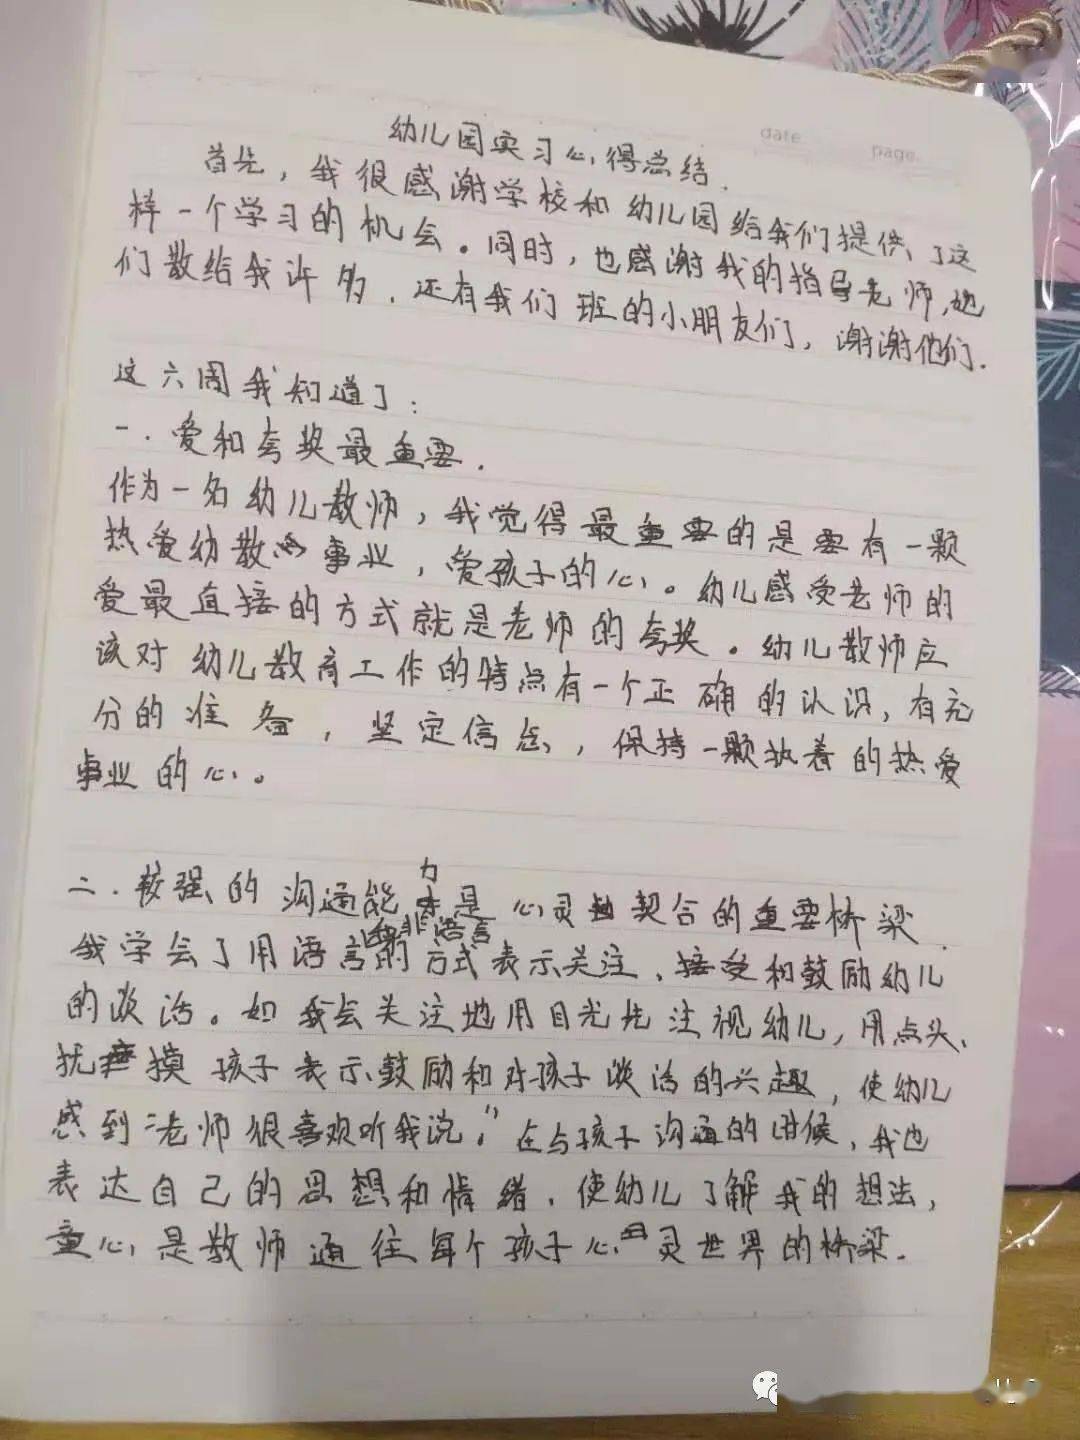 date
page
幼儿园实习心得总结.
首先，我很感谢学校和幼儿园给我们提供了这
样一个学习的机会。同时，也感谢我的指导老师，她
们教给我许多，还有我们班的小朋友们，谢谢他们.
这六周我知道了：
一.爱和夸奖最重要.
作为一名幼儿教师，我觉得最重要的是要有一颗
热爱幼教事业，爱孩子的心。幼儿感受老师的
爱最直接的方式就是老师的夸奖。幼儿教师应
该对幼儿教育工作的特点有一个正确的认识，有充
分的准备，坚定信念，保持一颗执着的热爱
事业的心。
二.较强的沟通能力是心灵契合的重要桥梁.
我学会了用语言和非语言的方式表示关注、接受和鼓励幼儿
的谈话。如我会关注地用目光先注视幼儿，用点头、
抚摸孩子表示鼓励和对孩子谈话的兴趣，使幼儿
感到“老师很喜欢听我说。”在与孩子沟通的时候，我也
表达自己的思想和情绪，使幼儿了解我的想法，
童心是教师通往每个孩子心灵世界的桥梁.